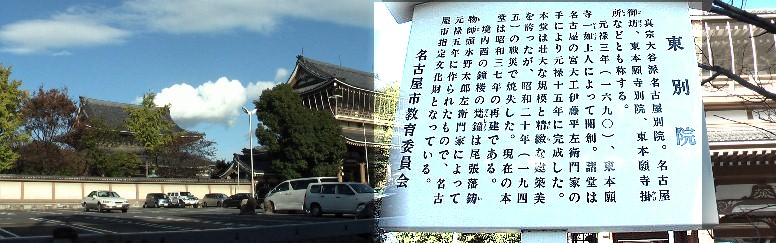 東別院
真宗大谷派名古屋別院。名古屋
御坊、東本願寺別院、東本願寺掛
所などとも称する。
元禄三年(一六九〇)、東本願
寺一如上人によって開創。諸堂は
名古屋の宮大工伊藤平左衛門家の
手により元禄十五年に完成した。
本堂は壮大な規模と精緻な建築美
を誇ったが、昭和二十年(一九四
五)の戦災で焼失した。現在の本
堂は昭和三七年の再建である。
境内西の鐘楼の梵鐘は尾張藩鋳
物師頭水野太郎左衛門家によって
元禄五年に作られたもので、名古
屋市指定文化財となっている。
名古屋市教育委員会